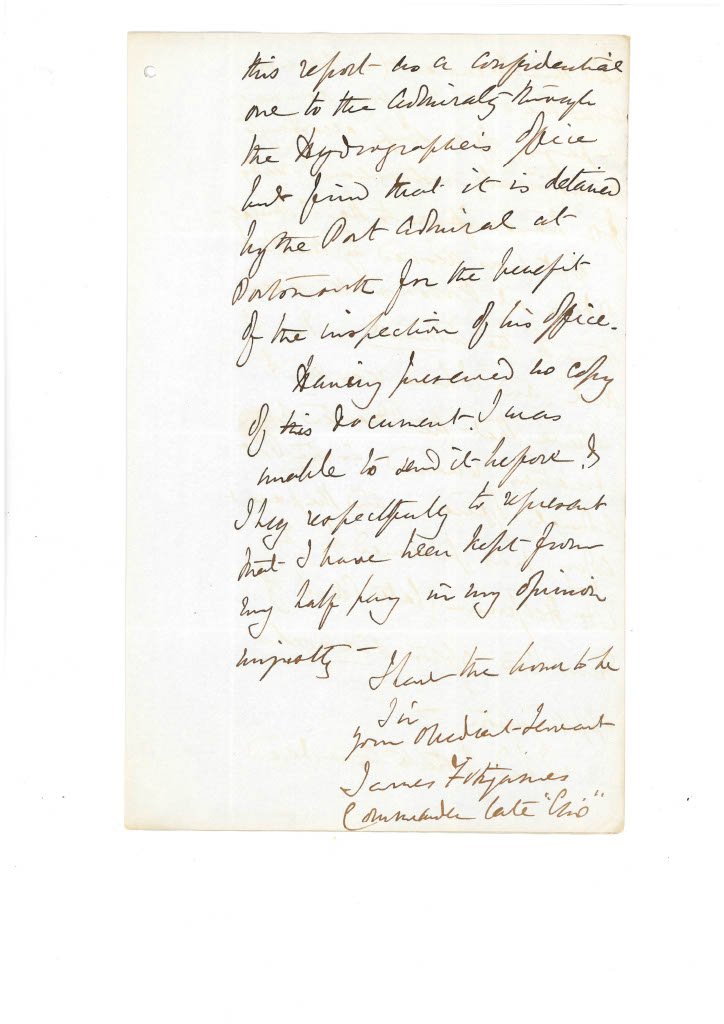 this report as a confidential
one to the Admiralty through
the Hydrographer's office
but find that it is detained
by the Port Admiral at
Portsmouth for the benefit
of the inspection of his office.
Having preserved no copy
of this document. I was
unable to send it before. &
I beg respectfully to represent
that I have been kept from
my half pay in my opinion
unjustly –
I have the honor to be
Sir
your obedient servant
James Fitzjames
Commander late "Clio"